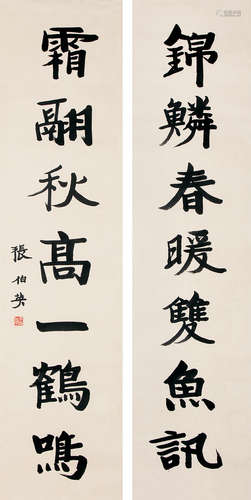 錦鱗春暖雙魚訊
霜翮秋高一鶴鳴
張伯英